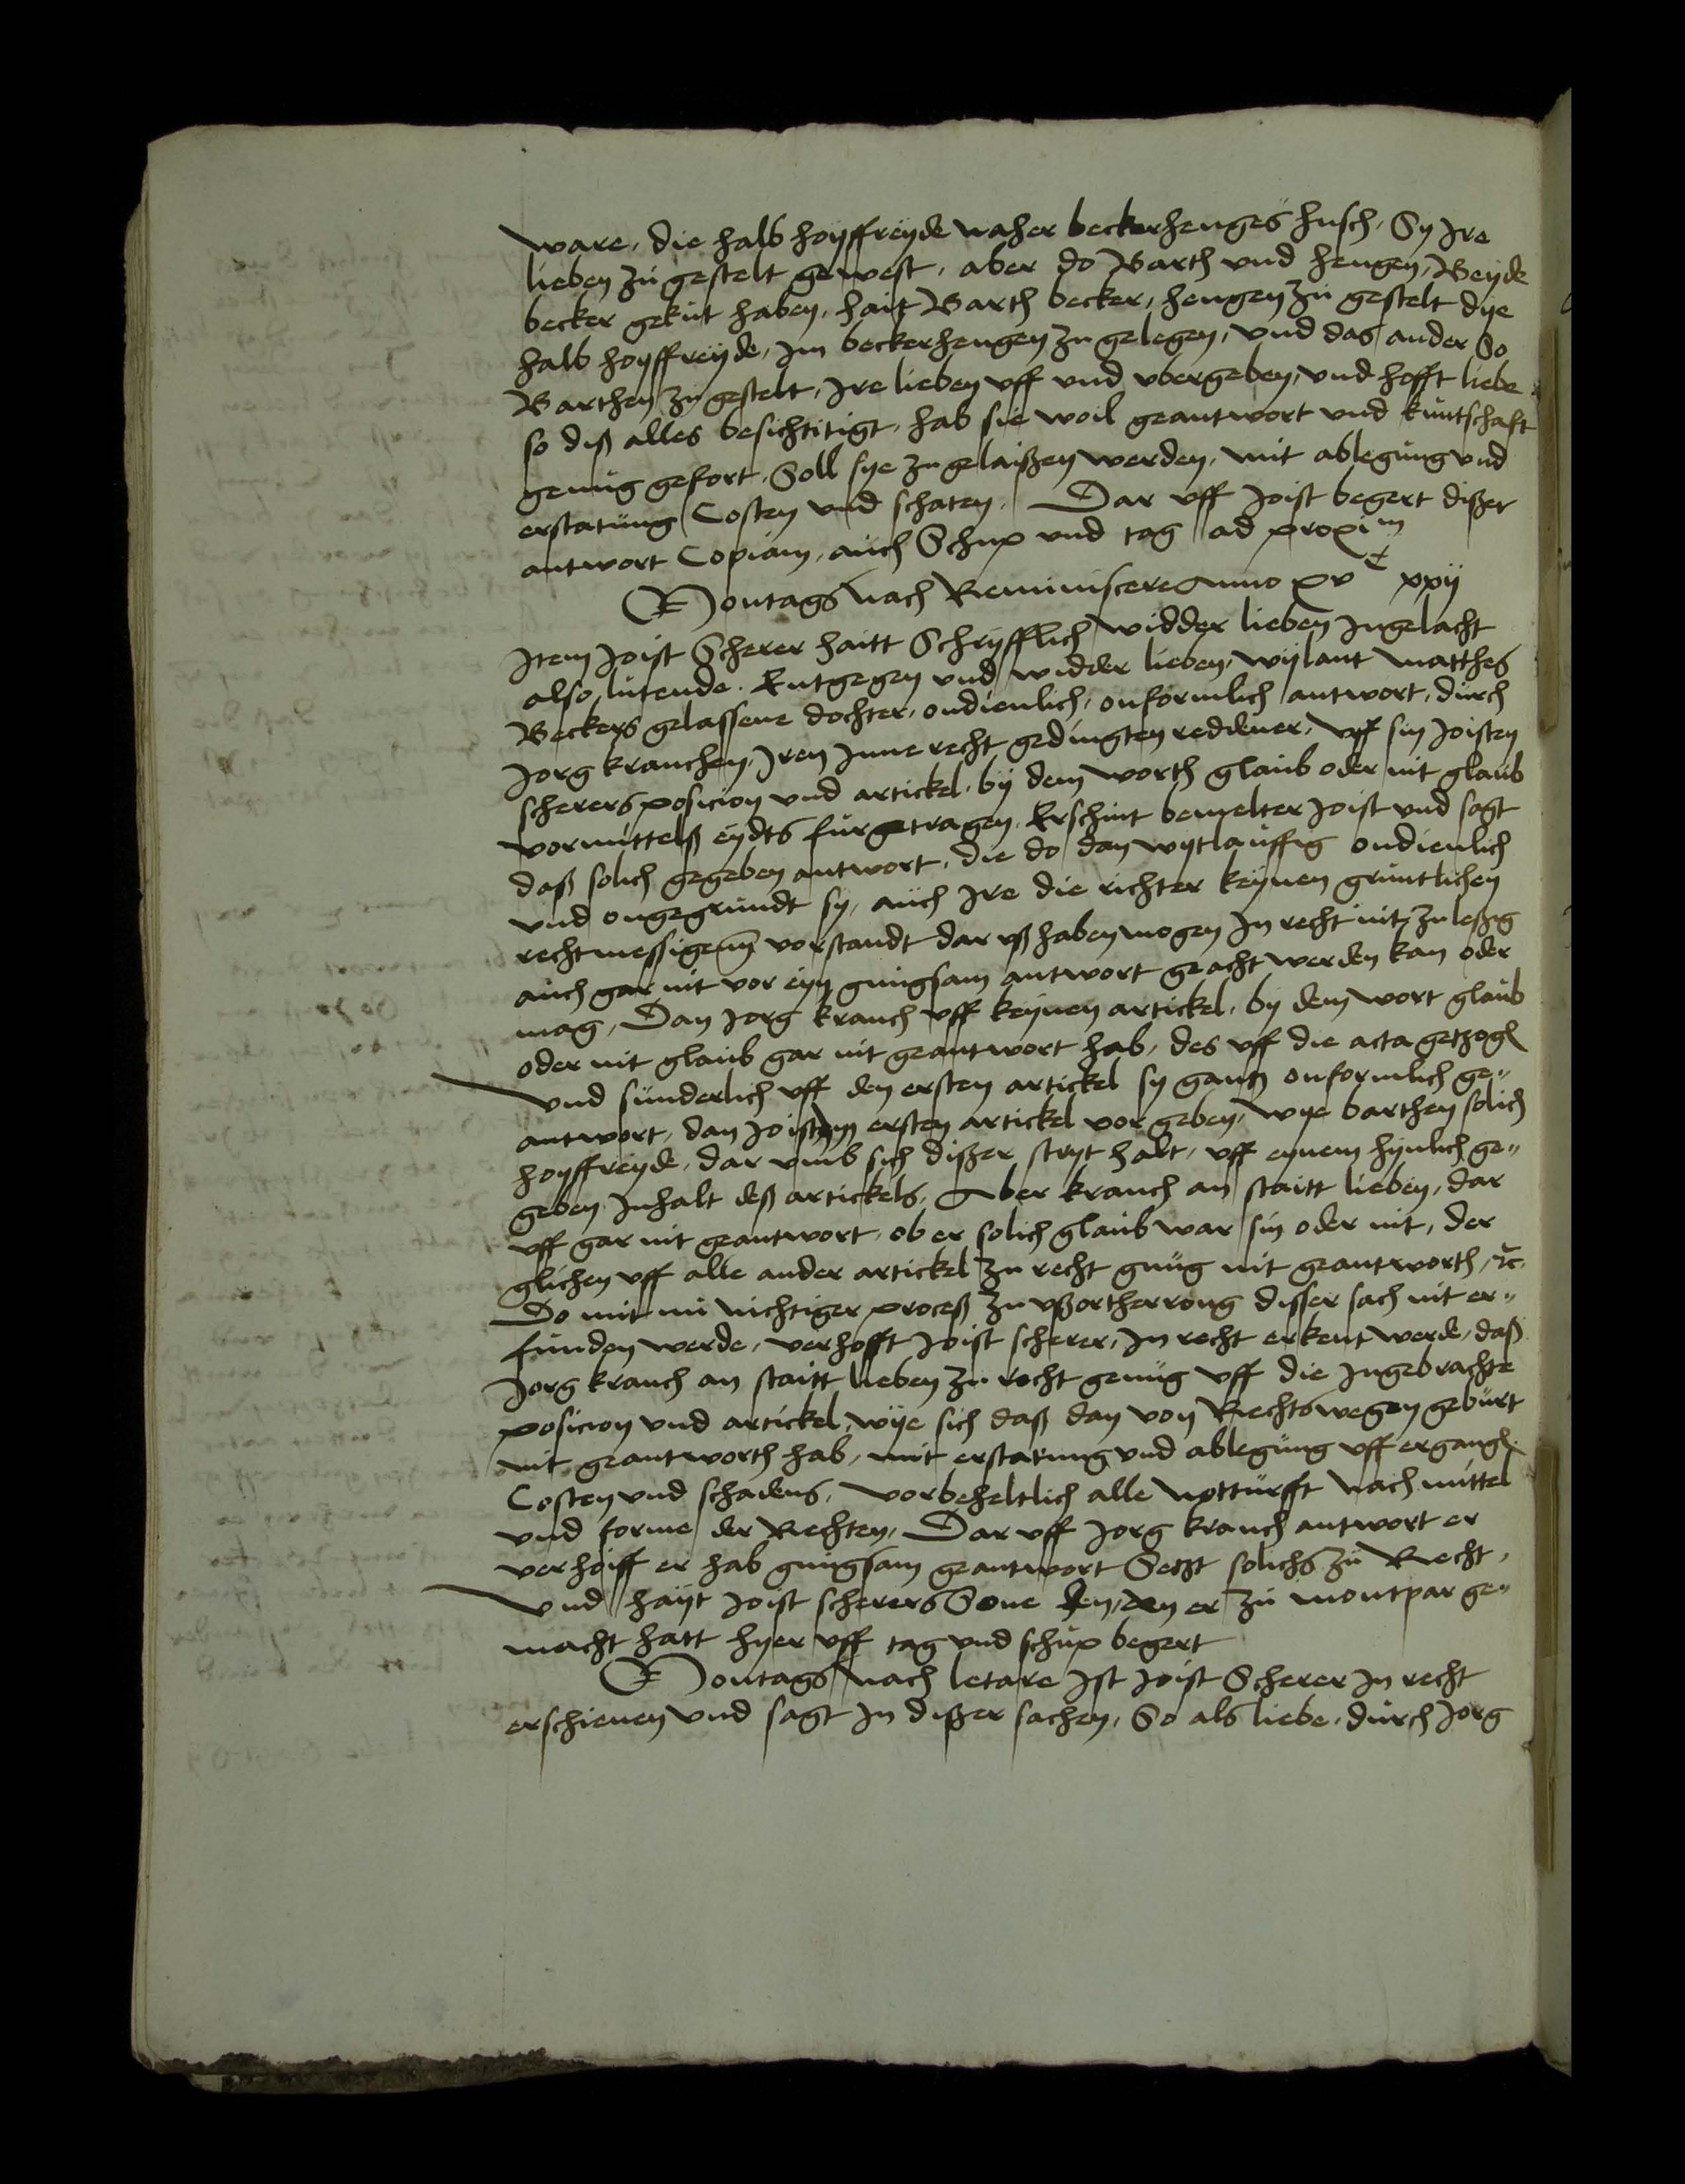 ware, die halb hoyffreyde naher beckerhenges husch, Sy Jre
lieben zu gestelt gewest, aber do Barth und hengen, Beyde
becker gekut haben, hait Barth becker, hengen zu gestelt dye
halb hoyffreyde, Jm beckerhengen zu gelegen, und das ander So
Barthen zu gestelt, Jre lieben uff und ubergeben, und hofft liebe
so diß alles besichtitigt, hab sie woil geantwort und kuntschafft
genug gefort, Soll sye zu gelaißen werden, mit ablegung und
erstatung Costen und schaten. Dar uff Joist begert dißer
antwort Copiam, auch Schup und tag ad proxim
Montags nach Reminiscere Anno xv c xxij
Jtem Joist Scherer haitt Schryfflich widder lieben Jngelacht
also lutende. Entgegen und widder lieben, wylant matthes
Beckers gelassene dochter, ondienlich, onformlich antwort, durch
Jorg krauchen, Jren Jnne recht gedingten reddener, uff sin Joisten
scherers posicion und artickel, by dem worth glaub oder nit glaub
vormittelß eydts furgetragen, Erschint bemelter Joist und sagt
daß solich gegeben antwort, die do dan wytlauffig ondienlich
und ongegrundt sy, auch Jre die richter keynen gruntlichen
rechtmessigenn vorstandt dar uß haben mogen Jn recht nit zuleßig
auch gar nit vor eyn gnugsam antwort geacht werden kan oder
mag, Dan Jorg krauch uff keynen artickel, by dem wort glaub
oder nit glaub gar nit geantwort hab, des uff die acta getzogen
und sunderlich uff den ersten artickel sy gantz onformlich ge„
antwort, dan Joist ym ersten artickel vorgeben, wye barthen solich
hoyffreyde, dar umb sich dißer stryt halt, uff eynem hynlich ge„
geben Jnhalt deß artickels, Aber krauch an staitt lieben, dar
uff gar nit geantwort, ob er solich glaub war sin oder nit, der
glichen uff alle ander artickel zu recht gnug nit geantworth, etc.
Do mit nu nichtiger proceß zu ußortherrong disser sach nit er„
funden werde, verhofft Joist scherer, Jn recht erkent werde, daß
Jorg krauch an staitt lieben zu recht genug uff die Jngebrachte
posicion und artickel, wye sich daß dan von Rechtswegen geburt
nit geantworth hab, mit erstatung und ablegung uff ergangen
Costen und schadens, vorbeheltlich alle nottürfft nach mittel
und forme der Rechten, Dar uff Jorg krauch antwort er
verhoiff er hab gnugsam geantwort Setzt solichs zu Recht,
und hayt Joist scherers Sone den, den er zu montpar ge„
macht hatt hyer uff tag und schup begert
Montags nach letare Jst Joist Scherer Jn recht
erschienen und sagt Jn dißer sachen, So als liebe, durch Jorg